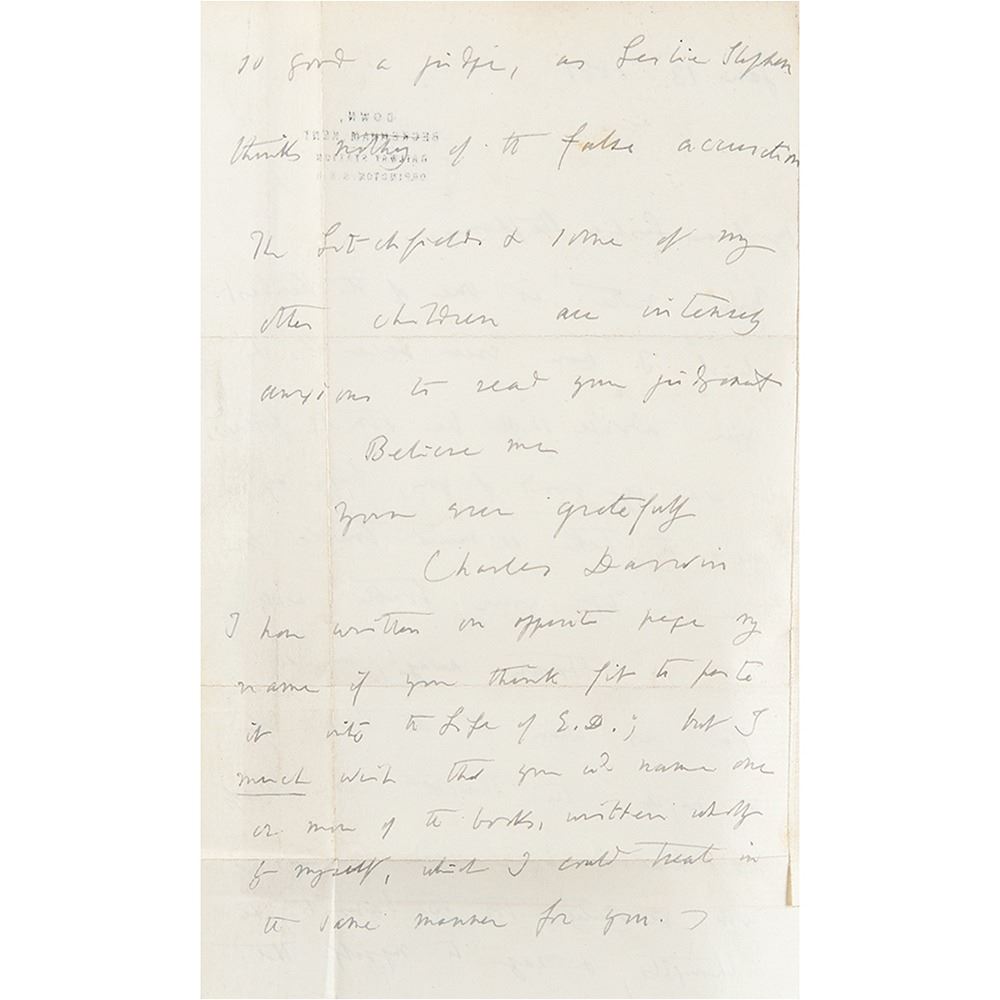 so good a judge, as Leslie Stephen
thinks nothing of the false accusation
The Litchfields & some of my
other children are intensely
anxious to read your judgment
Believe me
Yours ever gratefully
Charles Darwin
I have written on opposite page my
name if you think fit to paste
it into the Life of E.D.; but I
much wish that you wd name one
or more of the books, written wholly
by myself, which I could treat in
the same manner for you.
DOWN,
BECKENHAM, KENT
RAILWAY STATION
ORPINGTON. S.E.R.